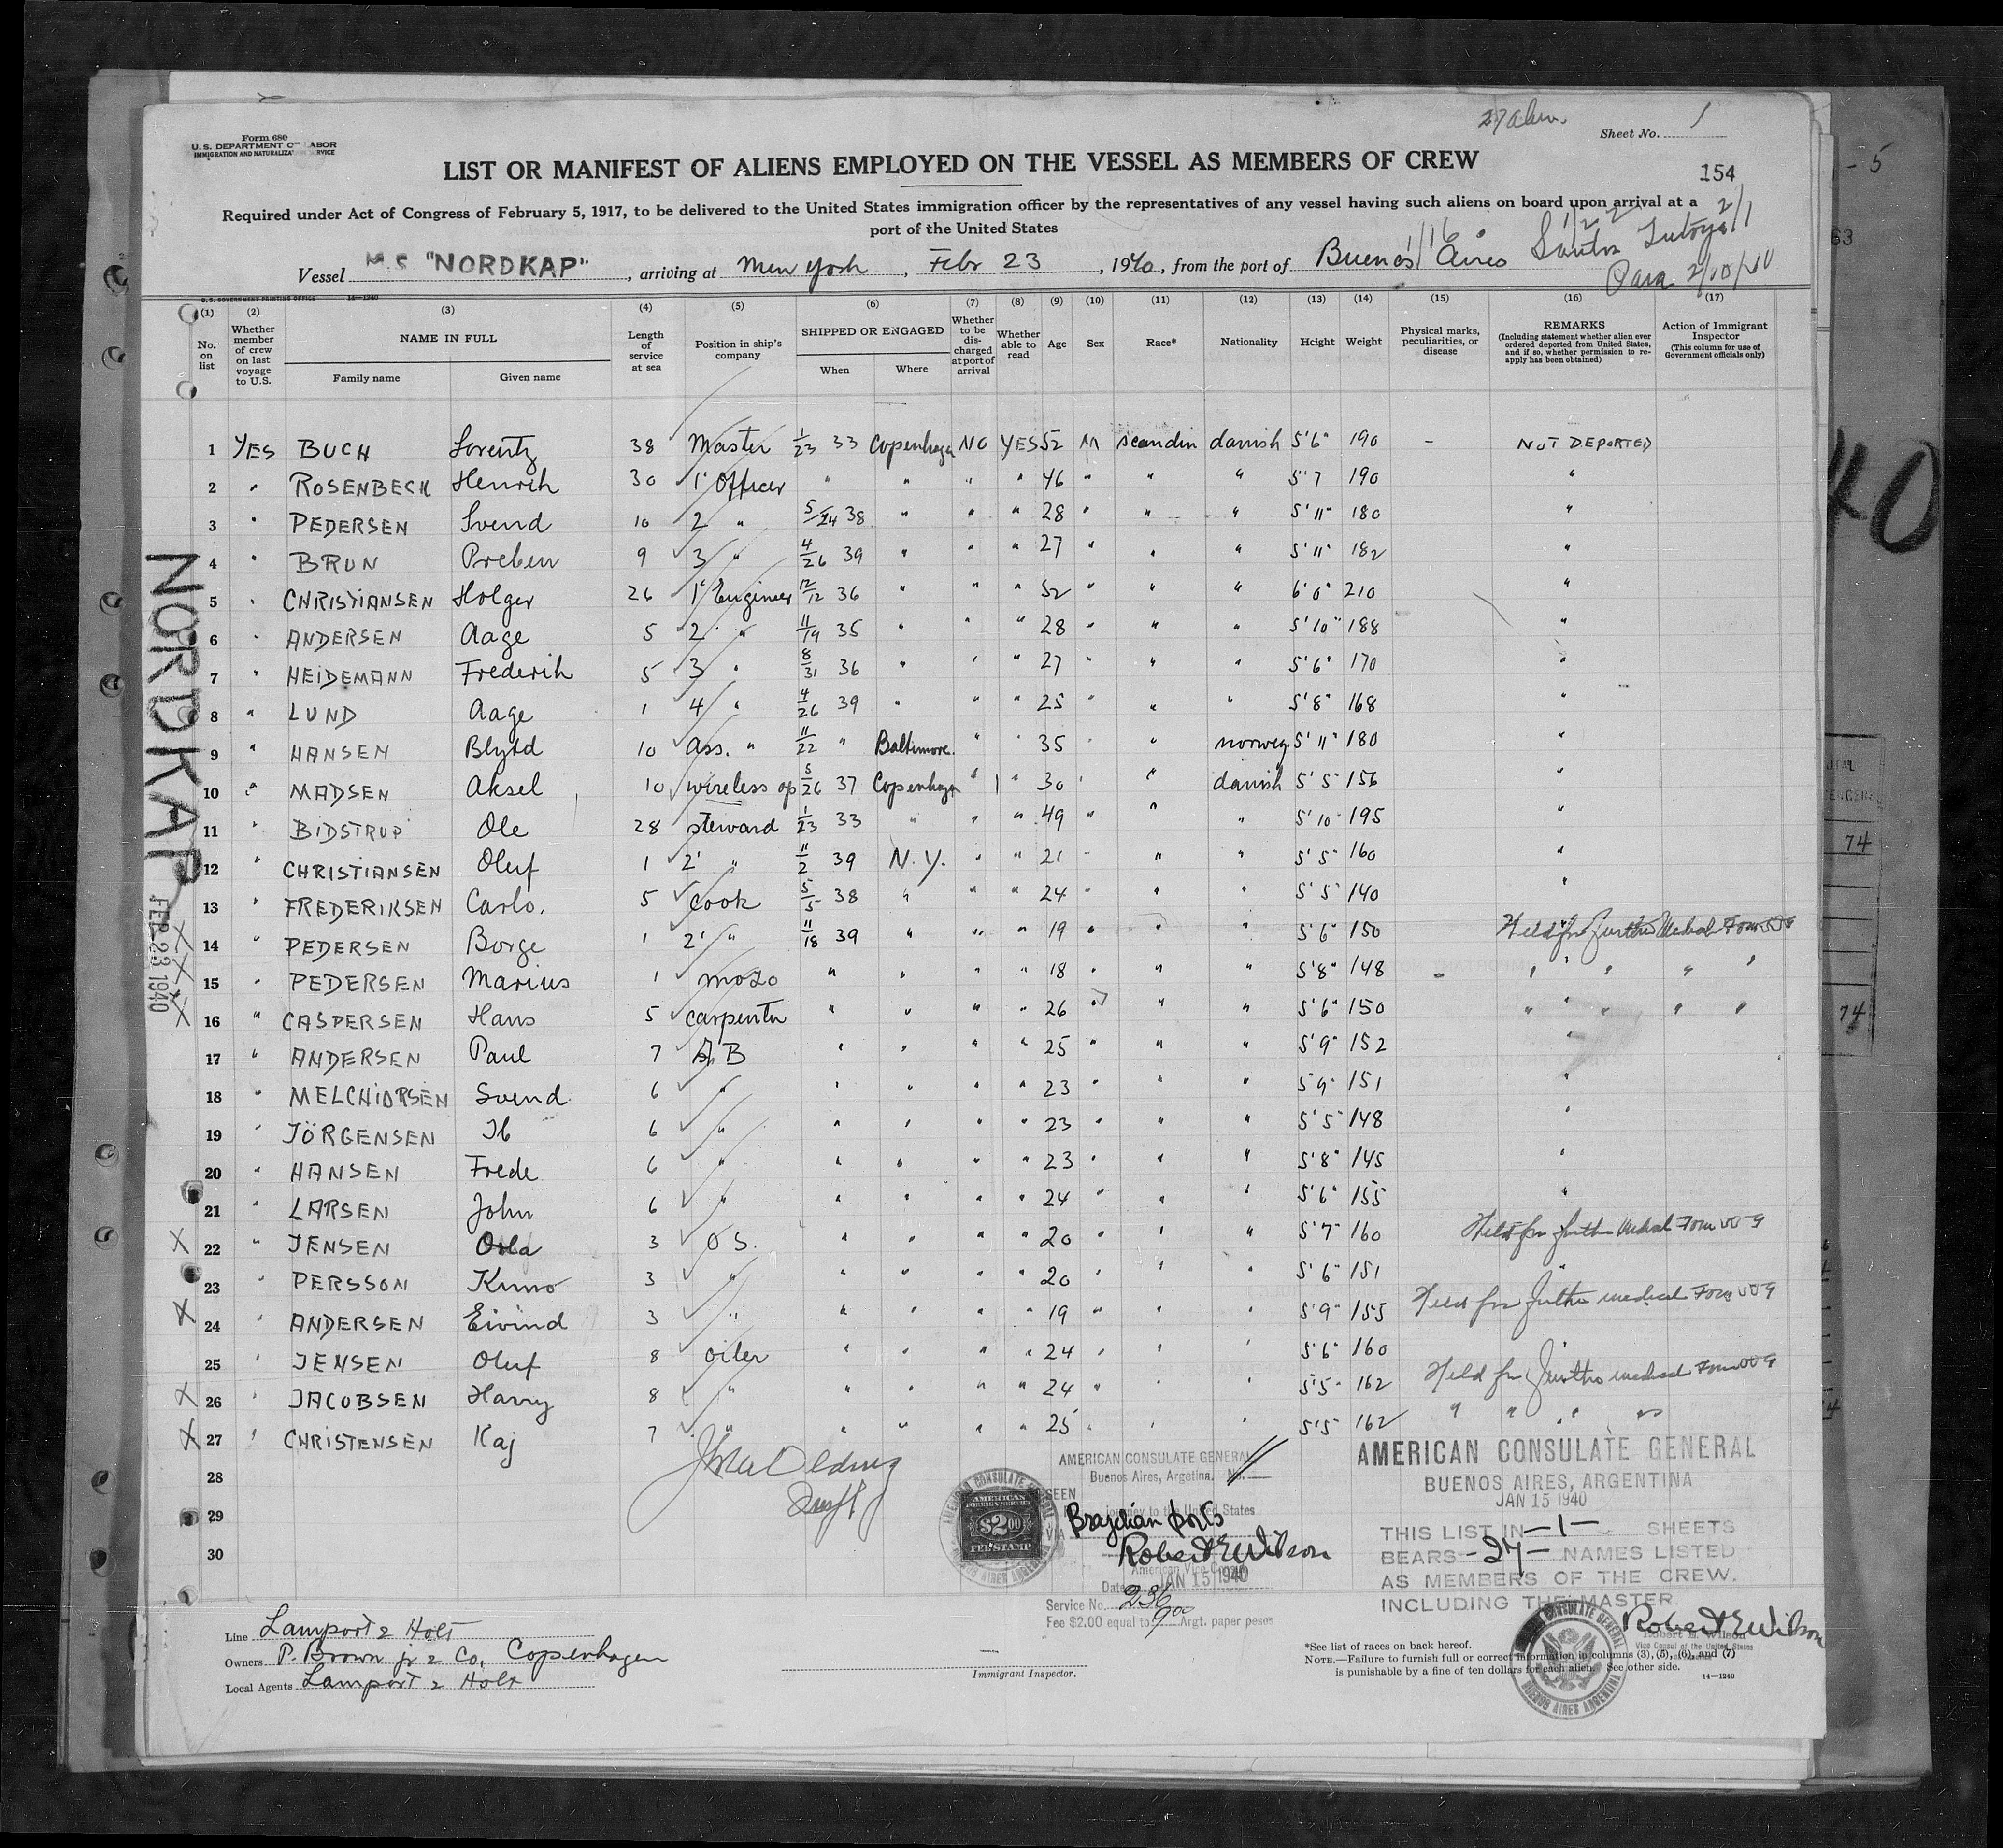 27 alien.
Form 680
U. S. DEPARTMENT OF LABOR
IMMIGRATION AND NATURALIZATION SERVICE
Sheet No. 1
LIST OR MANIFEST OF ALIENS EMPLOYED ON THE VESSEL AS MEMBERS OF CREW
154
Required under Act of Congress of February 5, 1917, to be delivered to the United States immigration officer by the representatives of any vessel having such aliens on board upon arrival at a
port of the United States
1/16 1/22 2/1
Vessel M.S "NORDKAP", arriving at New York, Febr 23, 1940, from the port of Buenos Aires Santos Tutoya
Para 2/10/40
U. S. GOVERNMENT PRINTING OFFICE 14—1240
(1) (2) (3) (4) (5) (6) (7) (8) (9) (10) (11) (12) (13) (14) (15) (16) (17)
No. on list
Whether member of crew on last voyage to U.S.
NAME IN FULL
Family name
Given name
Length of service at sea
Position in ship's company
SHIPPED OR ENGAGED
When
Where
Whether to be discharged at port of arrival
Whether able to read
Age
Sex
Race*
Nationality
Height
Weight
Physical marks, peculiarities, or disease
REMARKS
(Including statement whether alien ever ordered deported from United States, and if so, whether permission to re-apply has been obtained)
Action of Immigrant Inspector
(This column for use of Government officials only)
1 YES BUCH Lorentz 38 Master 1/23 33 Copenhagen NO YES 52 M scandin danish 5'6" 190 - NOT DEPORTED
2 " ROSENBECK Henrik 30 1' Officer " " " " 46 " " " 5'7 190 "
3 " PEDERSEN Svend 10 2 " 5/24 38 " " " 28 " " " 5'11" 180 "
4 " BRUN Preben 9 3 " 4/26 39 " " " 27 " " " 5'11" 182 "
5 " CHRISTIANSEN Holger 26 1' Engineer 12/12 36 " " " 52 " " " 6'0" 210 "
6 " ANDERSEN Aage 5 2 " 11/19 35 " " " 28 " " " 5'10" 188 "
7 " HEIDEMANN Frederik 5 3 " 8/31 36 " " " 27 " " " 5'6" 170 "
8 " LUND Aage 1 4 " 4/26 39 " " " 25 " " " 5'8" 168 "
9 " HANSEN 10 Ass. " 11/22 " Baltimore. " " 35 " " norweg 5'11" 180 "
10 " MADSEN Aksel 10 wireless op 5/26 37 Copenhagen " " 30 " " danish 5'5" 156 "
11 " BIDSTRUP Ole 28 steward 1/23 33 " " " 49 " " " 5'10" 195 "
12 " CHRISTIANSEN Oluf 1 2' " 11/2 39 N.Y. " " 21 " " " 5'5" 160 "
13 " FREDERIKSEN Carlo. 5 cook 5/5 38 " " " 24 " " " 5'5" 140 "
14 " PEDERSEN Borge 1 2' " 11/18 39 " " " 19 " " " 5'6" 150 Held for further Medical Form 509
15 " PEDERSEN Marius 1 mozo " " " " 18 " " " 5'8" 148 " " " " "
16 " CASPERSEN Hans 5 carpenter " " " " 26 " " " 5'6" 150 " " " " "
17 " ANDERSEN Paul 7 AB " " " " 25 " " " 5'9" 152 "
18 " MELCHIORSEN Svend 6 " " " " " 23 " " " 5'9" 151 "
19 " JÖRGENSEN Ib 6 " " " " " 23 " " " 5'5" 148 "
20 " HANSEN Frede 6 " " " " " 23 " " " 5'8" 145 "
21 " LARSEN John 6 " " " " " 24 " " " 5'6" 155 "
X 22 " JENSEN Orla 3 OS. " " " " 20 " " " 5'7" 160 Held for further Medical Form 509
23 " PERSSON Kuno 3 " " " " " 20 " " " 5'6" 151 "
X 24 " ANDERSEN Eivind 3 " " " " " 19 " " " 5'9" 155 Held for further medical Form 509
25 " JENSEN Oluf 8 oiler " " " " 24 " " " 5'6" 160 "
X 26 " JACOBSEN Harry 8 " " " " " 24 " " " 5'5" 162 Held for further medical Form 509
X 27 " CHRISTENSEN Kaj 7 " " " " " 25 " " " 5'5" 162 " " " "
28
29
30
NORDKAP
FEB 23 1940
AMERICAN CONSULATE GENERAL
Buenos Aires, Argetina. No.
SEEN
journey to the United States
VIA Brazilian ports
Robert E Wilson
American Vice Consul
Date JAN 15 1940
Service No. 236
Fee $2.00 equal to 9.00 Argt. paper pesos
AMERICAN
FOREIGN SERVICE
$2.00
FEE STAMP
AMERICAN CONSULATE GENERAL
BUENOS AIRES, ARGENTINA
JAN 15 1940
THIS LIST IN -1- SHEETS
BEARS -27- NAMES LISTED
AS MEMBERS OF THE CREW.
INCLUDING THE MASTER.
Robert E Wilson
Robert E. Wilson
Vice Consul of the United States
CONSULATE GENERAL
BUENOS AIRES ARGENTINA
Line Lamport & Holt
Owners P. Brown jr & Co, Copenhagen
Local Agents Lamport & Holt
Immigrant Inspector.
*See list of races on back hereof.
NOTE.—Failure to furnish full or correct information in columns (3), (5), (6), and (7)
is punishable by a fine of ten dollars for each alien. See other side.
14—1240
- 5
63
40
74
74